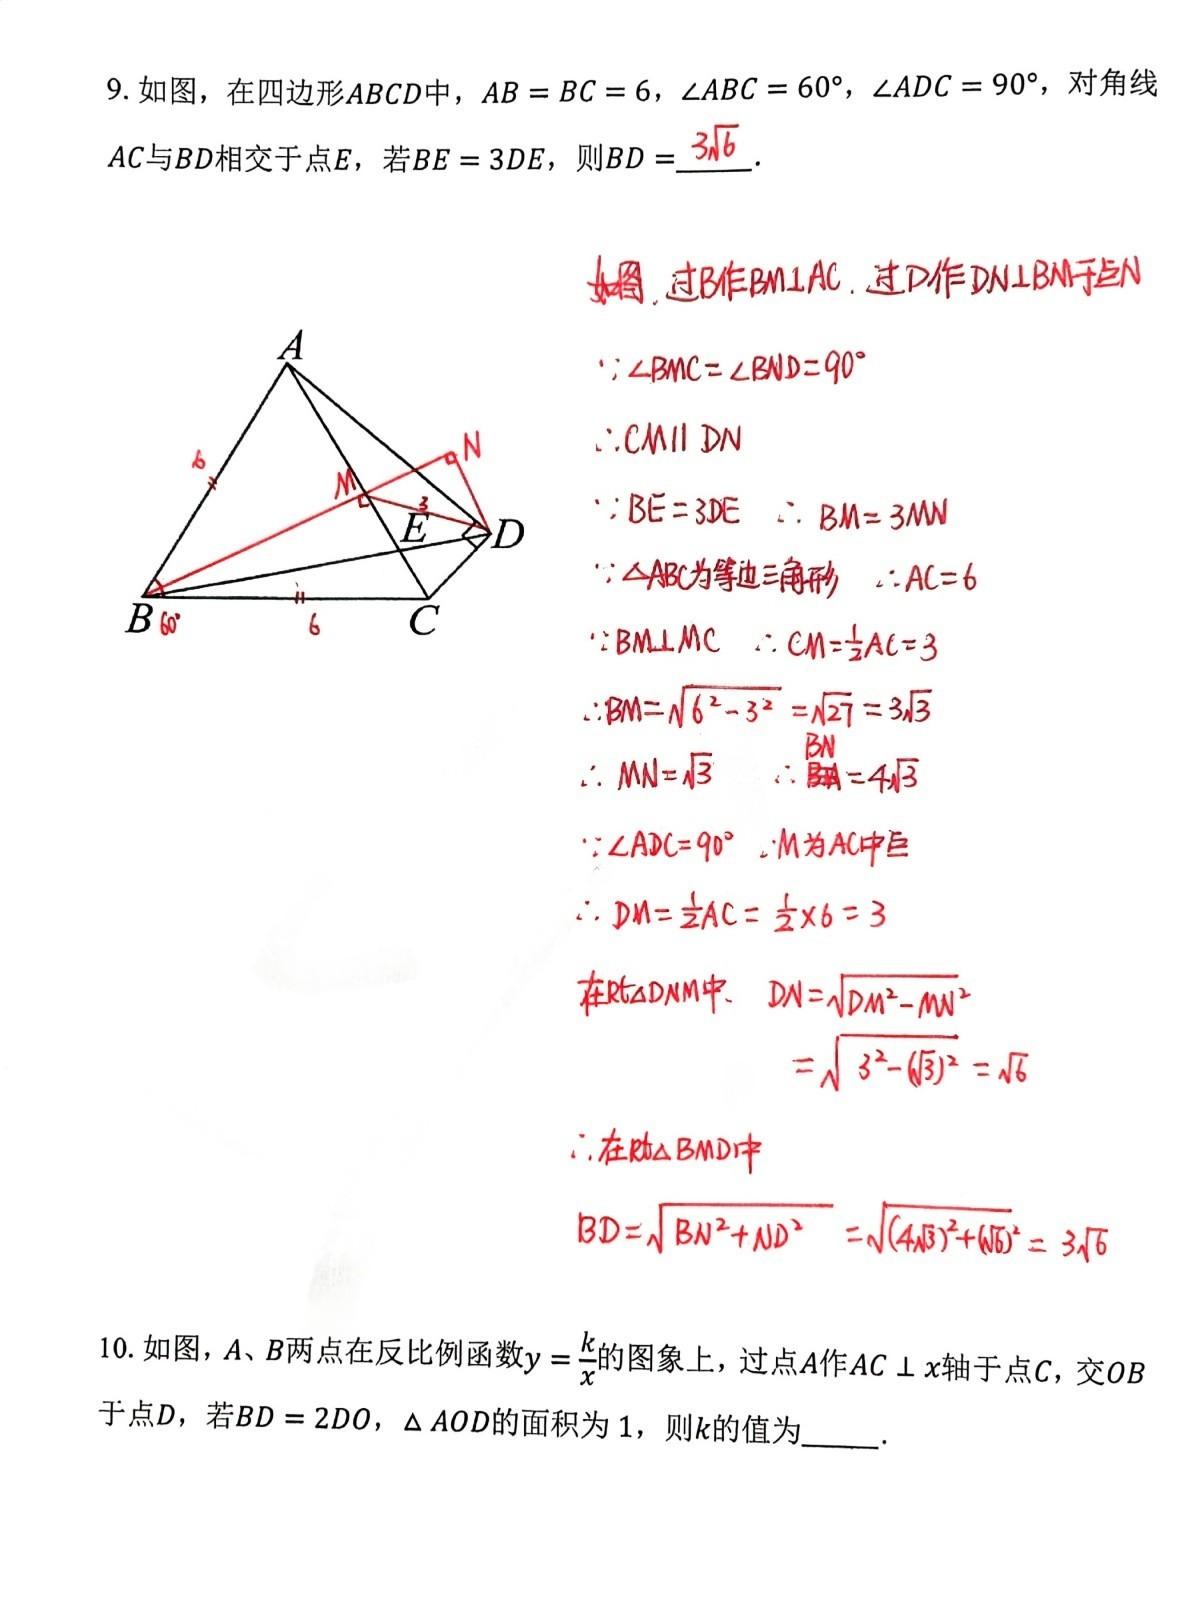 9. 如图，在四边形ABCD中，AB = BC = 6，∠ABC = 60°，∠ADC = 90°，对角线
AC与BD相交于点E，若BE = 3DE，则BD = 3√6 .
如图，过B作BM⊥AC，过D作DN⊥BM于点N
A
6
M
N
3
E
D
B
60°
6
C
∵∠BMC=∠BND=90°
∴CM∥DN
∵BE=3DE ∴BM=3MN
∵△ABC为等边三角形 ∴AC=6
∵BM⊥MC ∴CM=½AC=3
∴BM=√(6²-3²)=√27=3√3
∴MN=√3 ∴BN=4√3
∵∠ADC=90° ∴M为AC中点
∴DM=½AC=½×6=3
在Rt△DNM中、DN=√(DM²-MN²)
=√(3²-(√3)²)=√6
∴在Rt△BMD中
BD=√(BN²+ND²)=√((4√3)²+(√6)²)=3√6
10. 如图，A、B两点在反比例函数y = k/x的图象上，过点A作AC ⊥ x轴于点C，交OB
于点D，若BD = 2DO，△AOD的面积为 1，则k的值为_____.